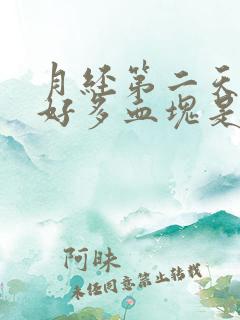 月经第二天
好多血块是
阿昧
未经同意禁止转载